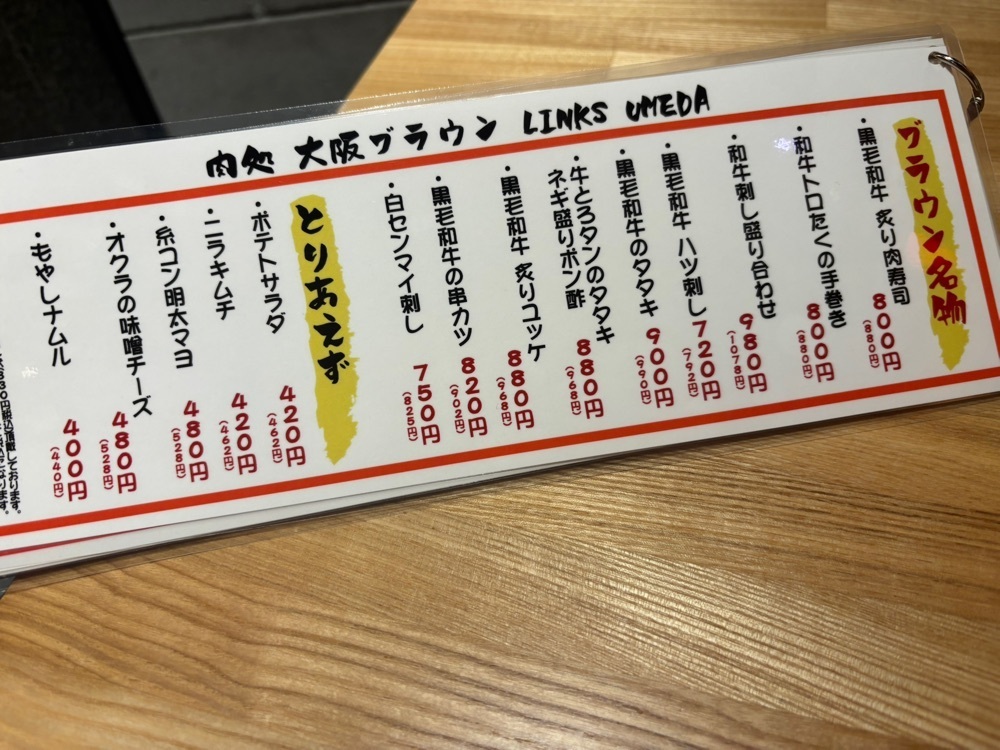 肉処 大阪ブラウン LINKS UMEDA
ブラウン名物
・黒毛和牛 炙り肉寿司 800円
(880円)
・和牛トロたくの手巻き 800円
(880円)
・和牛刺し盛り合わせ 980円
(1078円)
・黒毛和牛 ハツ刺し 720円
(792円)
・黒毛和牛のタタキ 900円
(990円)
・牛とろタンのタタキ
ネギ盛りポン酢 880円
(968円)
・黒毛和牛 炙りユッケ 880円
(968円)
・黒毛和牛の串カツ 820円
(902円)
・白センマイ刺し 750円
(825円)
とりあえず
・ポテトサラダ 420円
(462円)
・ニラキムチ 420円
(462円)
・糸コン明太マヨ 480円
(528円)
・オクラの味噌チーズ 480円
(528円)
・もやしナムル 400円
(440円)
330円(税込)頂戴しております。
なります。